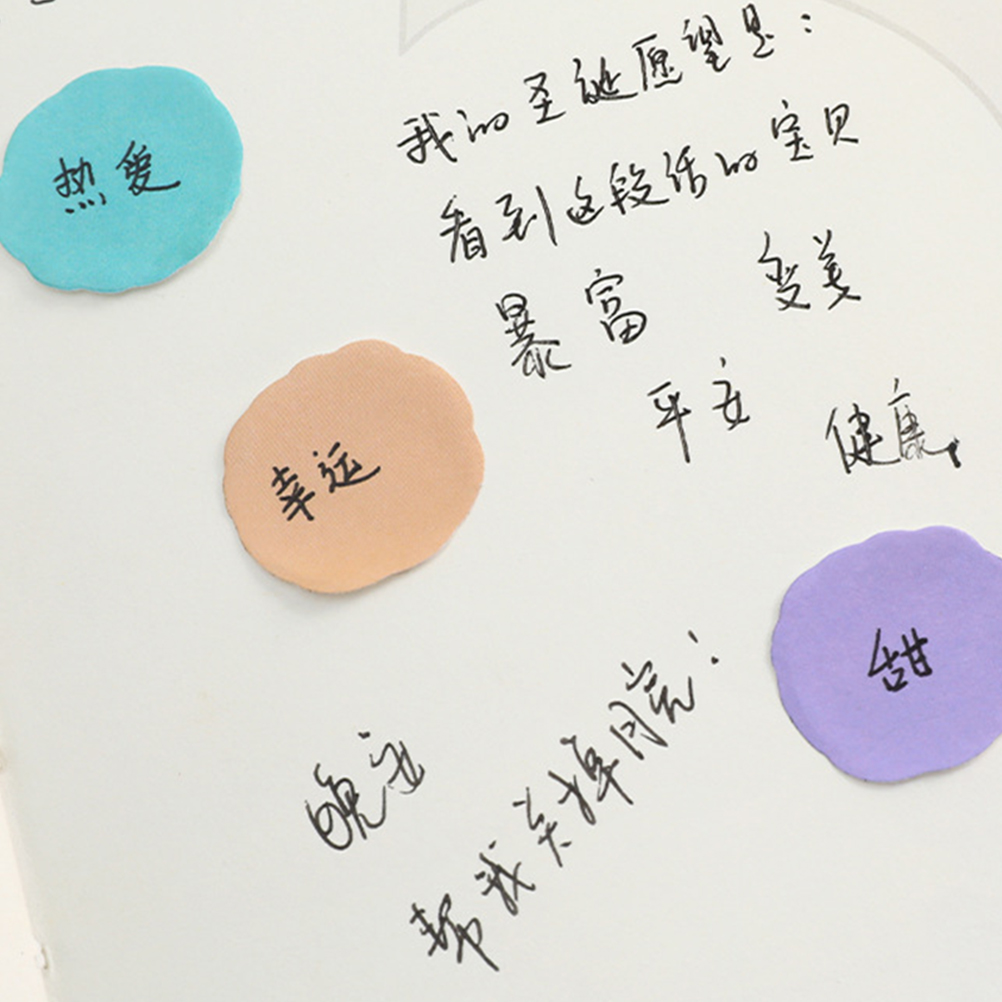 我的圣诞愿望是：
看到这段话的宝贝
暴富 变美
平安 健康
热爱
幸运
甜
晚安
帮我关掉月亮：